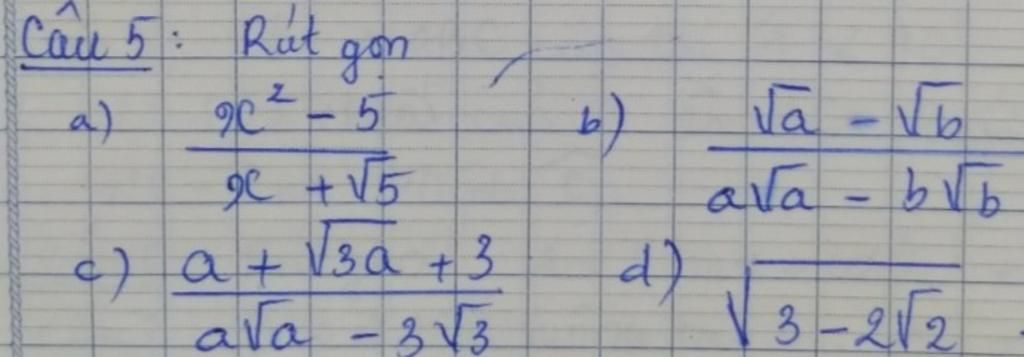 Câu 5: Rút gọn
a) (x² - 5)/(x + √5) b) (√a - √b)/(a√a - b√b)
c) (a + √3a + 3)/(a√a - 3√3) d) √(3 - 2√2)